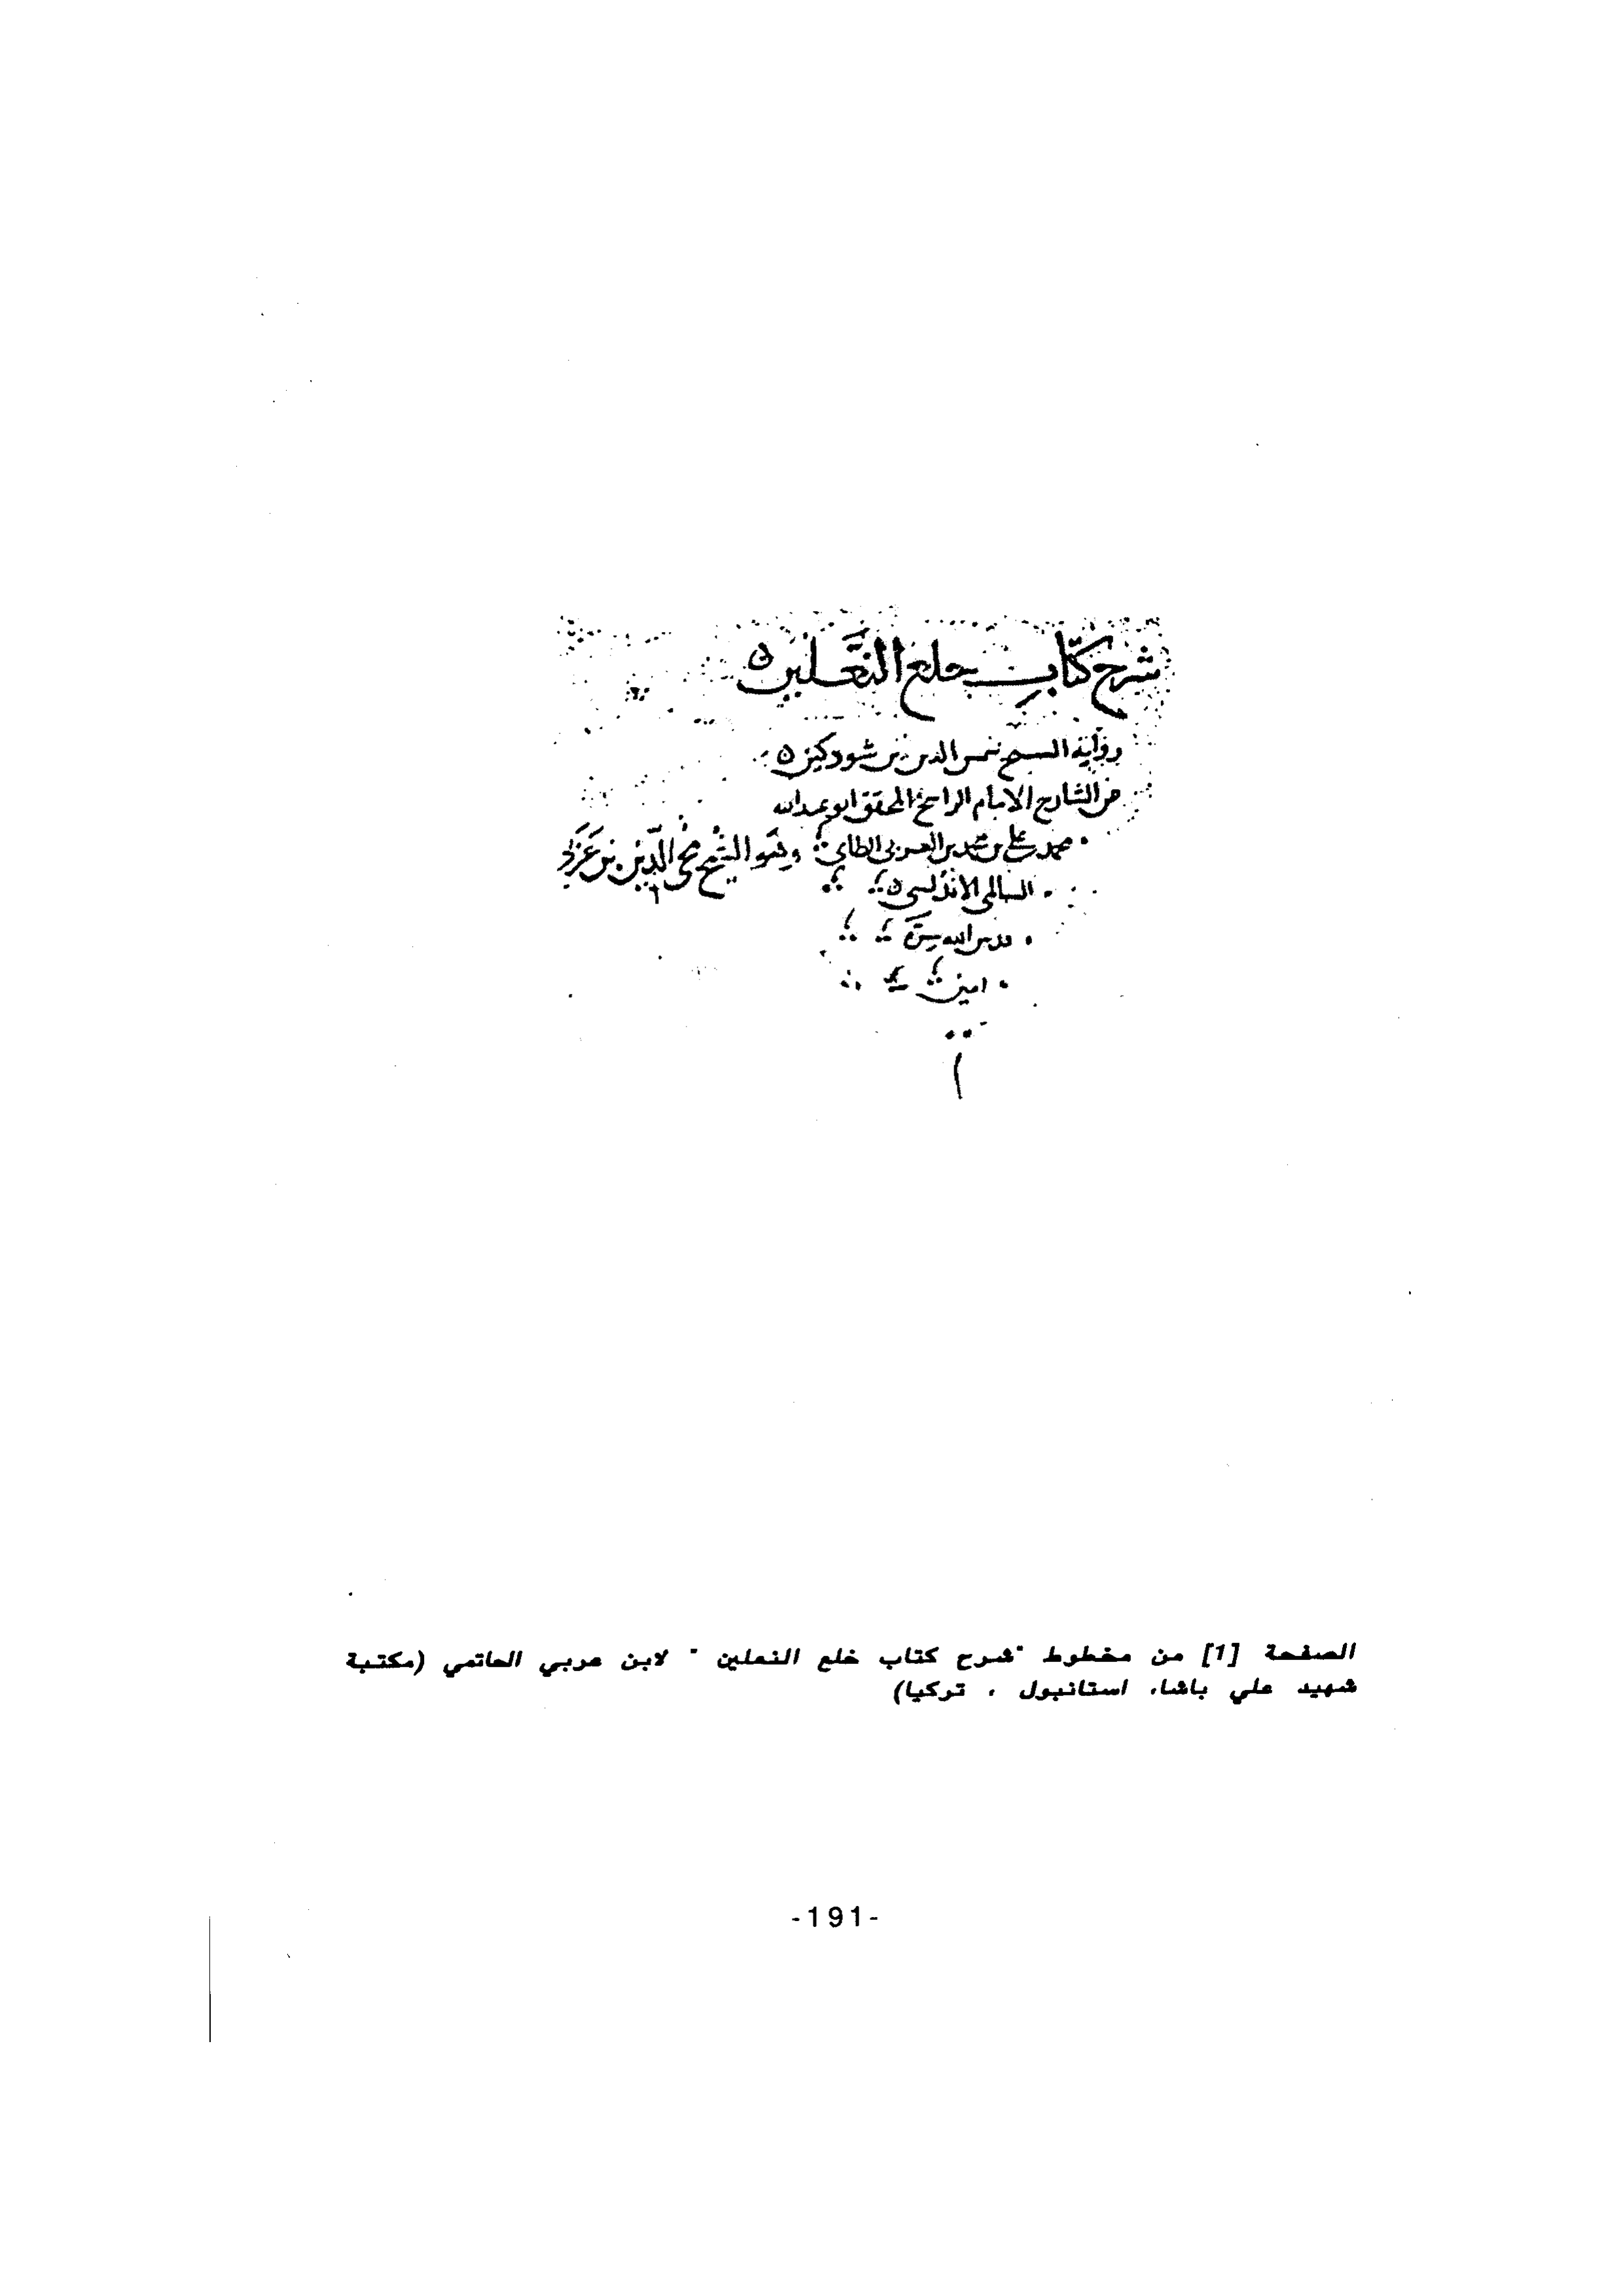 شرح كتاب خلع النعلين
رواية الشيخ شمس الدين بن شودكين
عن الشارح الامام الراسخ المحقق ابو عبدالله
محمد بن علي بن محمد بن العربي الطاي وهو الشيخ محي الدين بن عربي
الاندلسي
قدس الله سره
امين
الصفحة [1] من مخطوط "شرح كتاب خلع النعلين " لابن عربي الحاتمي (مكتبة
شهيد علي باشا، استانبول ، تركيا)
-191-